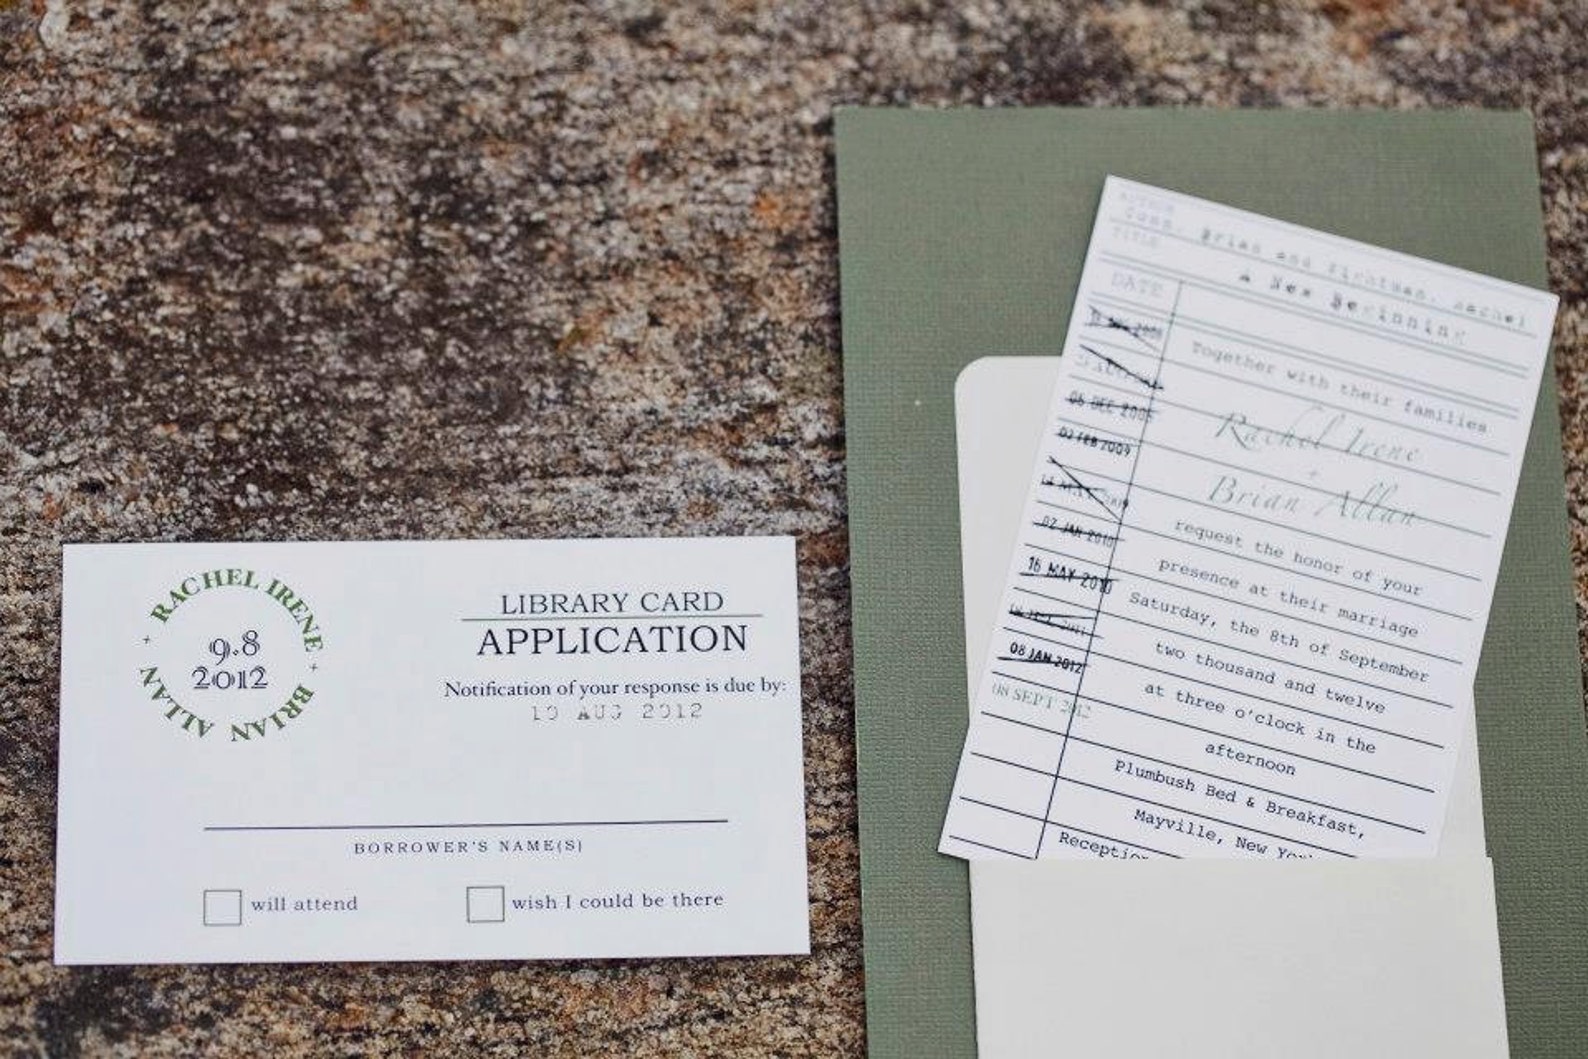 RACHEL IRENE
+ +
9.8
2012
BRIAN ALLAN
LIBRARY CARD
APPLICATION
Notification of your response is due by:
10 AUG 2012
BORROWER'S NAME(S)
will attend
wish I could be there
AUTHOR
Brian and Rachel
TITLE
A New Beginning
DATE
Together with their families
Rachel Irene
+
Brian Allan
request the honor of your
presence at their marriage
Saturday, the 8th of September
two thousand and twelve
at three o'clock in the
afternoon
Plumbush Bed & Breakfast,
Mayville, New York
Reception
06 DEC 2008
02 FEB 2009
02 JAN 2010
16 MAY 2010
08 JAN 2012
08 SEPT 2012